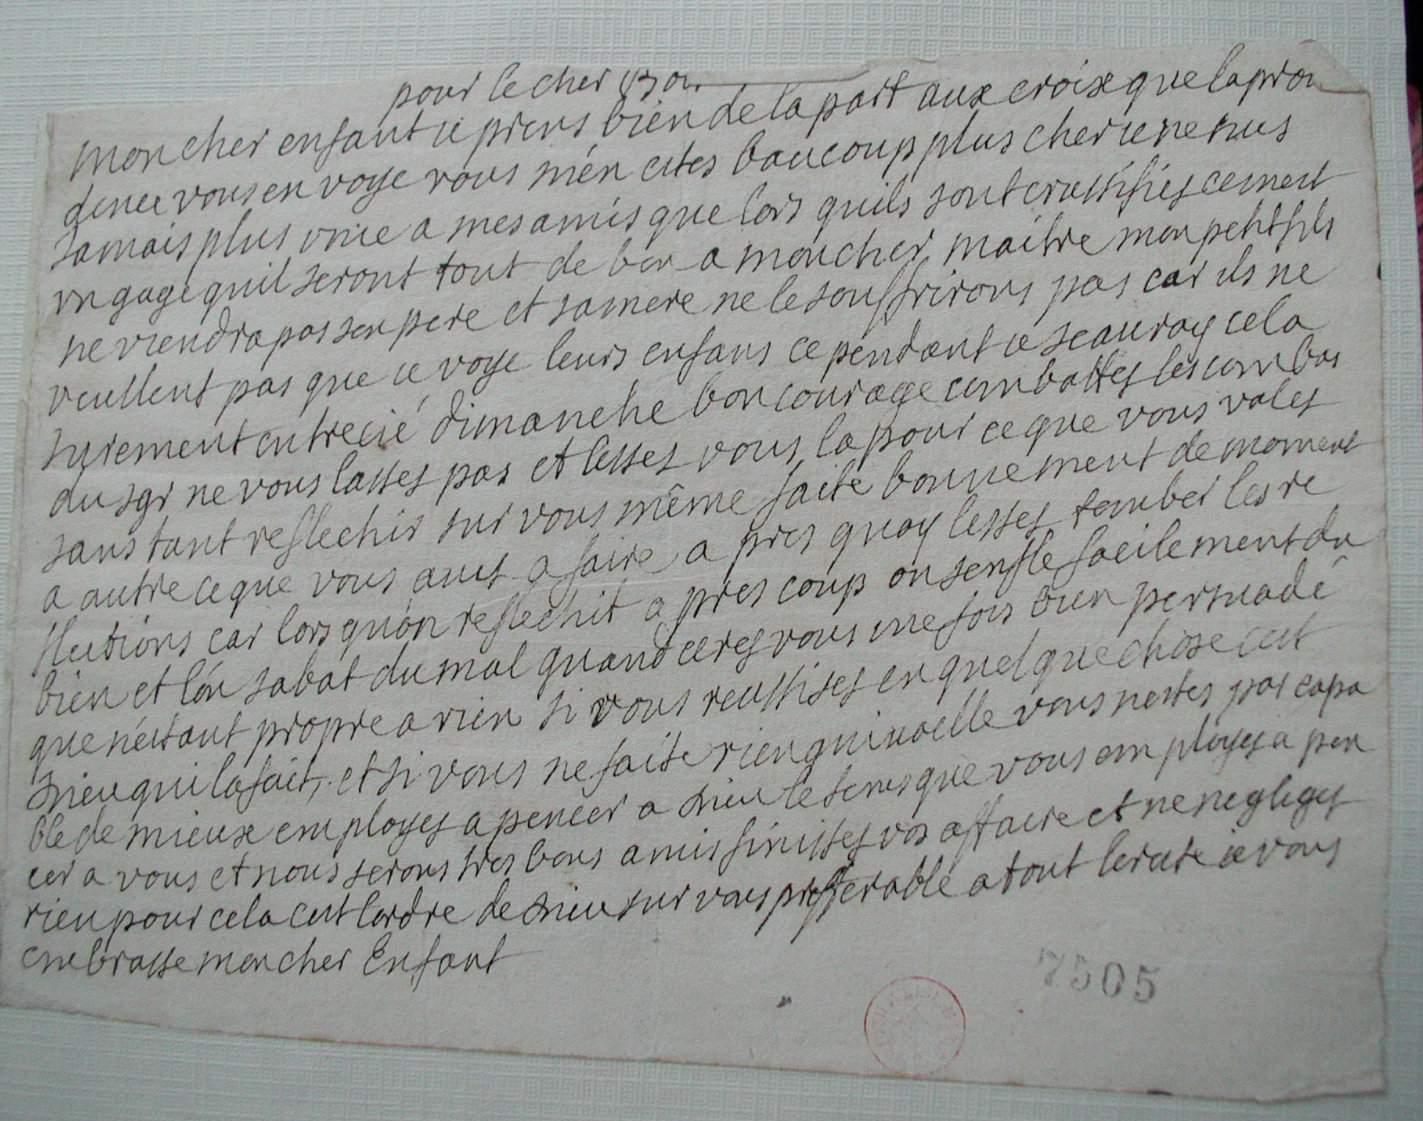 pour le cher
mon cher enfant ie prens bien de la part aux croix que la prou
dence vous en voye vous m'én estes baucoup plus cher ie ne suis
jamais plus vnie a mes amis que lors quils sont crussifiés ce m'est
vn gage quil seront tout de bon a mon cher maitre mon petit fils
ne viendra pas son pere et sa mere ne le souffrirons pas car ils ne
veullent pas que ie voye leurs enfans ce pendant ie scauray cela
surement dimanche bon courage combattes les combas
du sgr ne vous lasses pas et lesses vous la pour ce que vous vales
sans tant reflechir sur vous même faite bonnement de moment
a autre ce que vous aves a faire a pres quoy lesses tomber les re
flections car lors qu'on reflechit a pres coup on senfle facilement du
bien et l'ón sabat du mal quand ceres vous vne fois bien persuadé
que n'éstant propre a rien si vous reussises en quelque chose cest
Dieu qui la fait, et si vous ne faite rien qui vaille vous nestes pas capa
ble de mieux employes a pencer a Dieu le tems que vous employes a pen
cer a vous et nous serons tres bons amis finisses vos affaire et ne negliges
rien pour cela cest lordre de Dieu sur vous prefferable a tout le reste ie vous
embrasse mon cher Enfant
7505